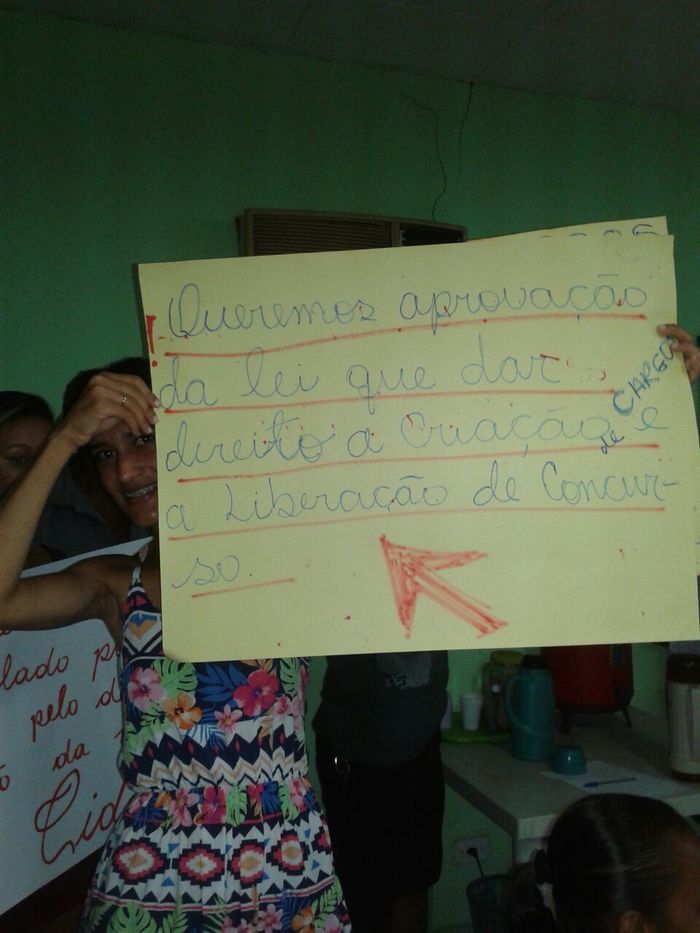 Queremos aprovação
da lei que dar
direito a Criação de CARGOS e
a Liberação de Concur-
so.
lado
pelo d
da
Cid